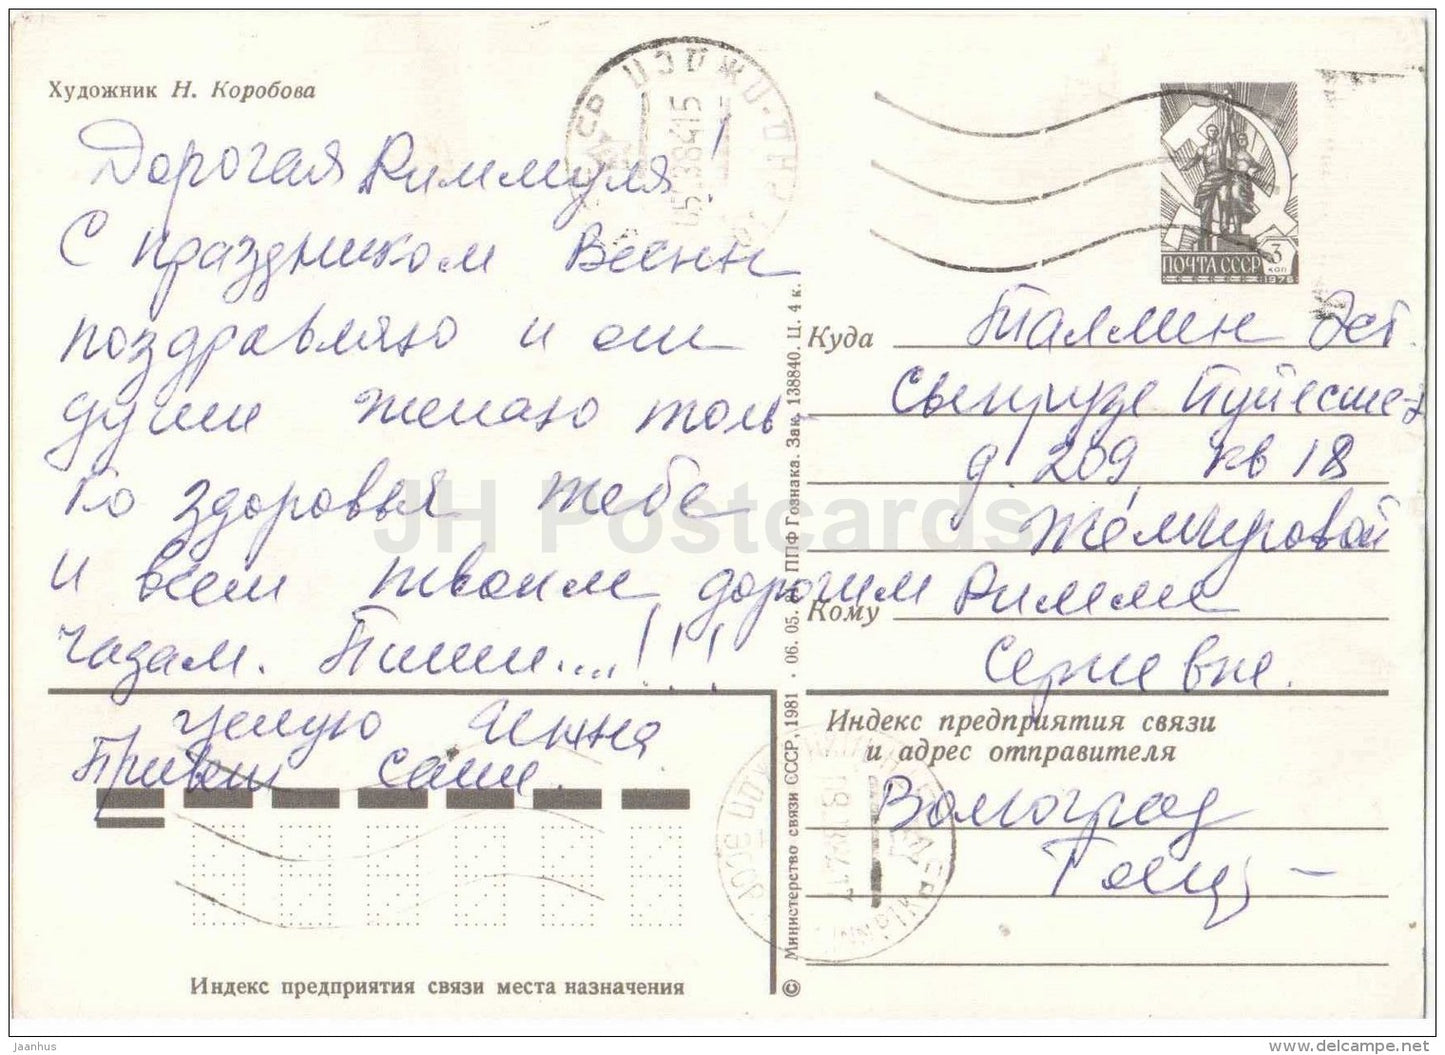 Художник Н. Коробова
Дорогая Риммуля!
С праздником Весны
поздравляю и от
души желаю толь
ко здоровья тебе
и всем твоим дорогим
чадам. Пиши....!!!
Целую
Привет Саше.
ПОЧТА СССР
3
КОП
1976
Куда Таллин Эст.
Пуйестее
д. 209, кв 18
Кому Римме
Сергеевне.
Индекс предприятия связи
и адрес отправителя
Волгоград
Индекс предприятия связи места назначения
© Министерство связи СССР, 1981 · 06. 05. ППФ Гознака. Зак. 138840. Ц. 4 к.
JH Postcards
jaanhus
www.delcampe.net